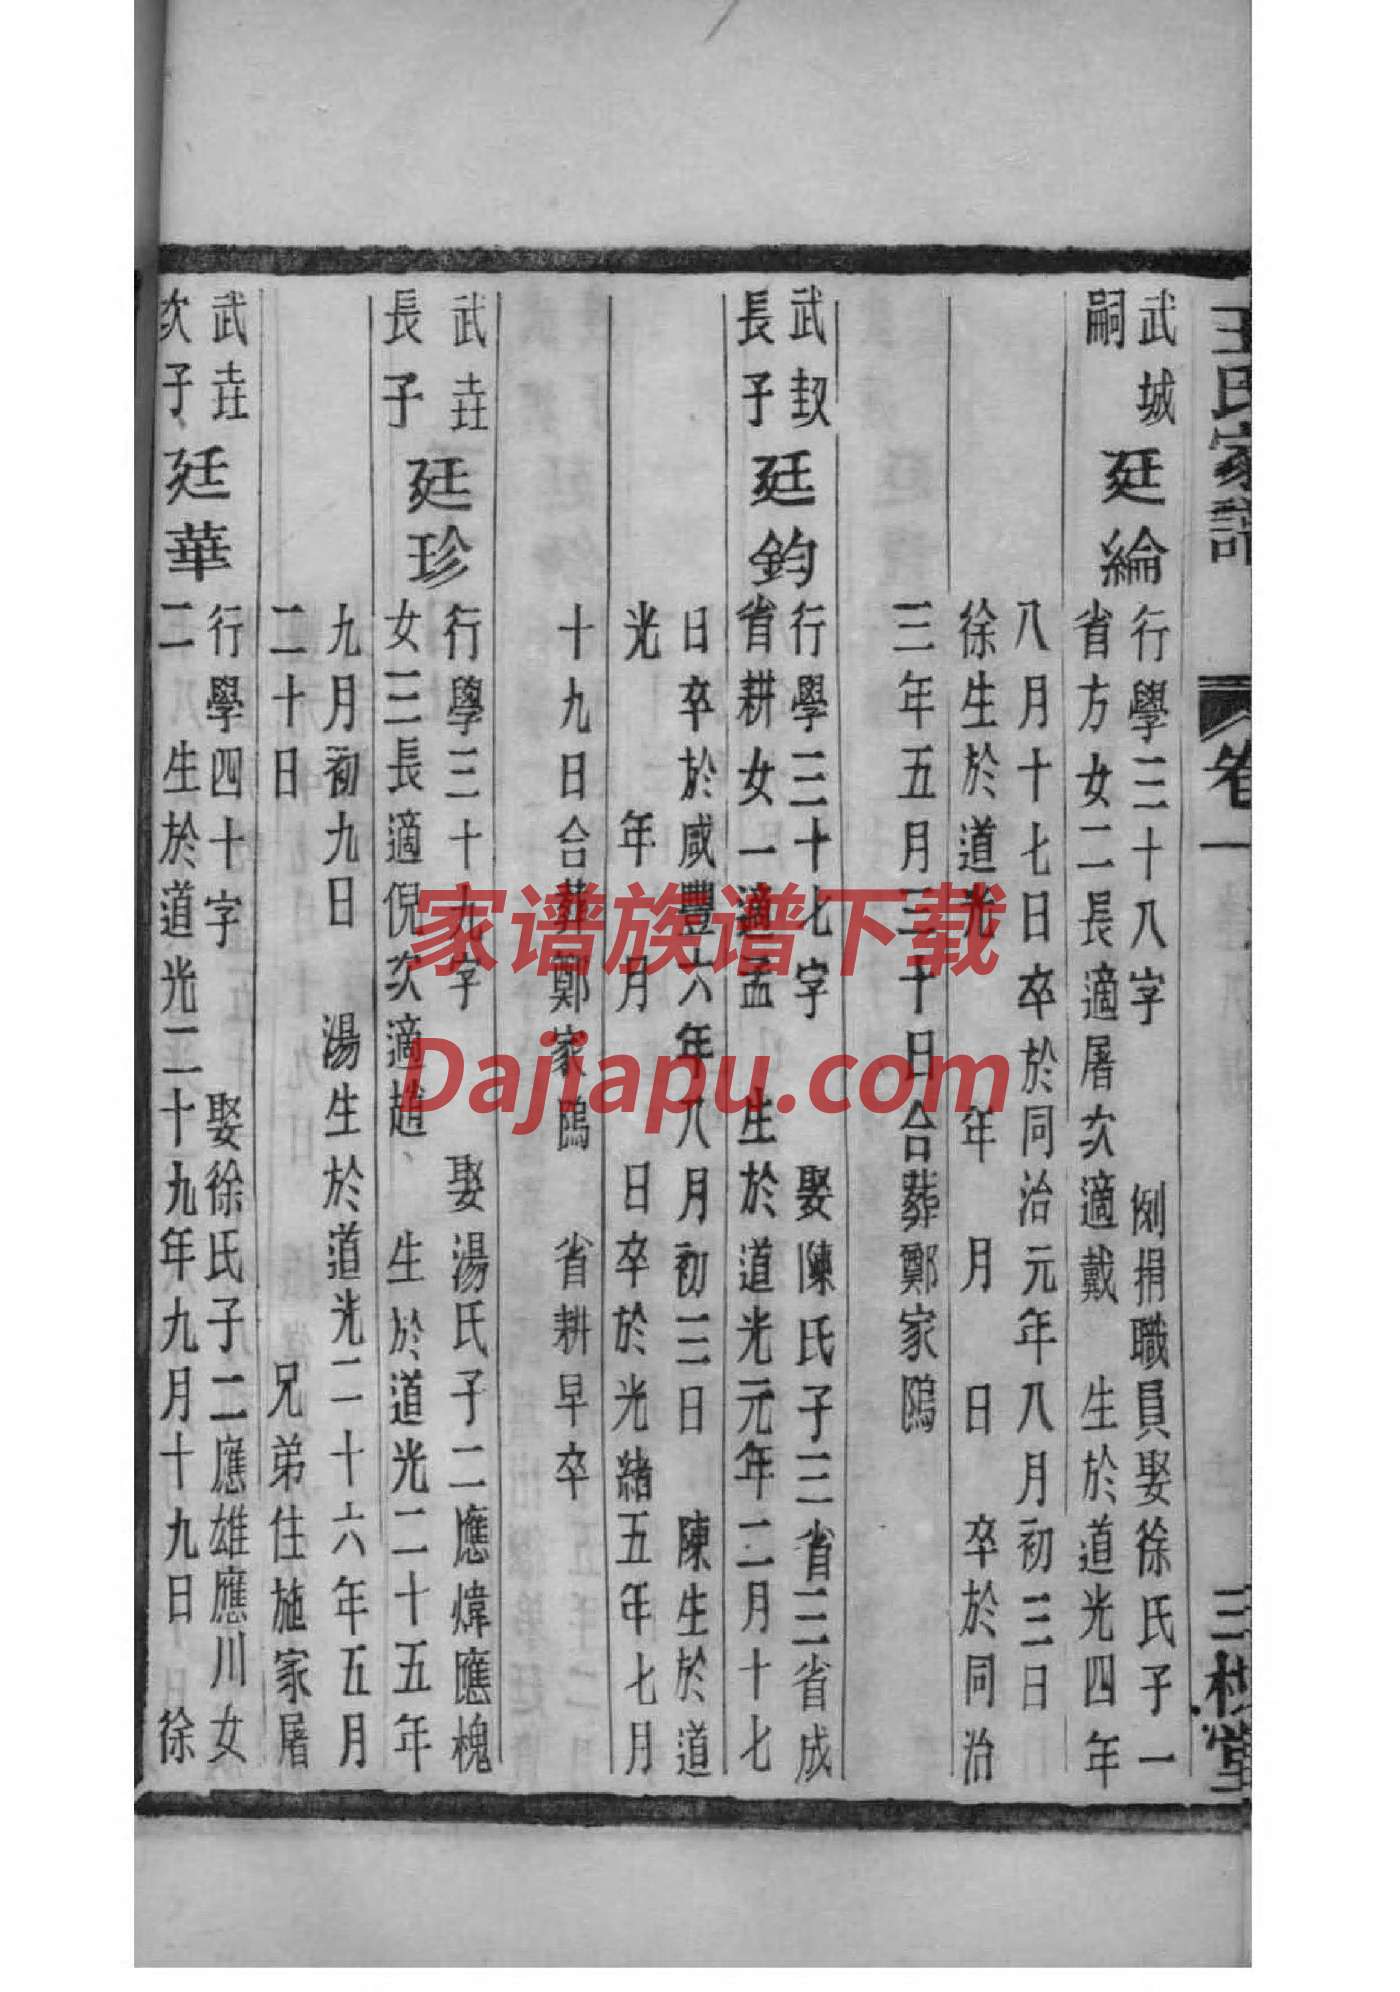 王氏家譜 卷一 三槐堂
武城
嗣
廷綸
行學三十八字 例捐職員娶徐氏子一
省方女二長適屠次適戴 生於道光四年
八月十七日卒於同治元年八月初三日
徐生於道光 年 月 日 卒於同治
三年五月三十日合葬鄭家隖
武㓞
長子
廷鈞
行學三十七字 娶陳氏子三省三省成
省耕女一適孟 生於道光元年二月十七
日卒於咸豐六年八月初三日 陳生於道
光 年 月 日卒於光緒五年七月
十九日合葬鄭家隖 省耕早卒
武
長子
廷珍
行學三十九字 娶湯氏子二應煒應槐
女三長適倪次適趙 生於道光二十五年
九月初九日 湯生於道光二十六年五月
二十日 兄弟住施家屠
武
次子
廷華
行學四十字 娶徐氏子二應雄應川女
二 生於道光二十九年九月十九日 徐
家谱族谱下载
Dajiapu.com